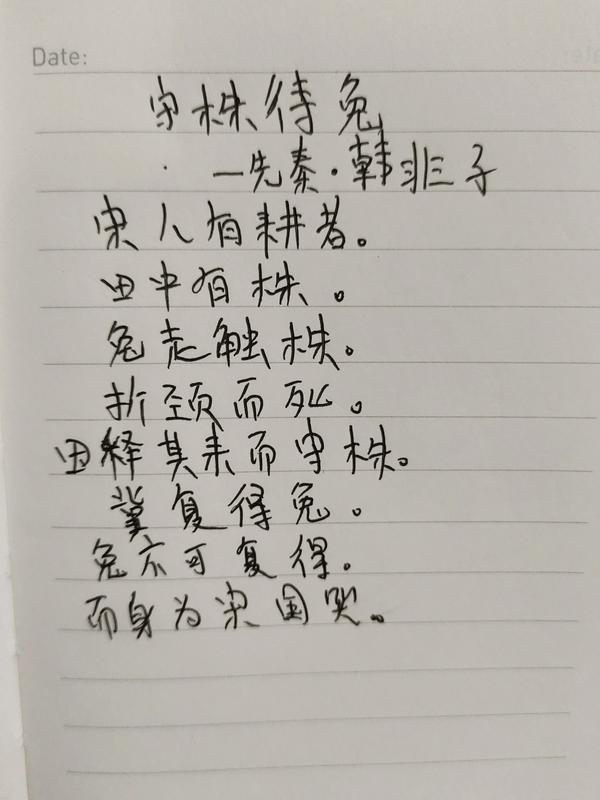 Date:
守株待兔
—先秦·韩非子
宋人有耕者。
田中有株。
兔走触株。
折颈而死。
因释其耒而守株。
冀复得兔。
兔不可复得。
而身为宋国笑。